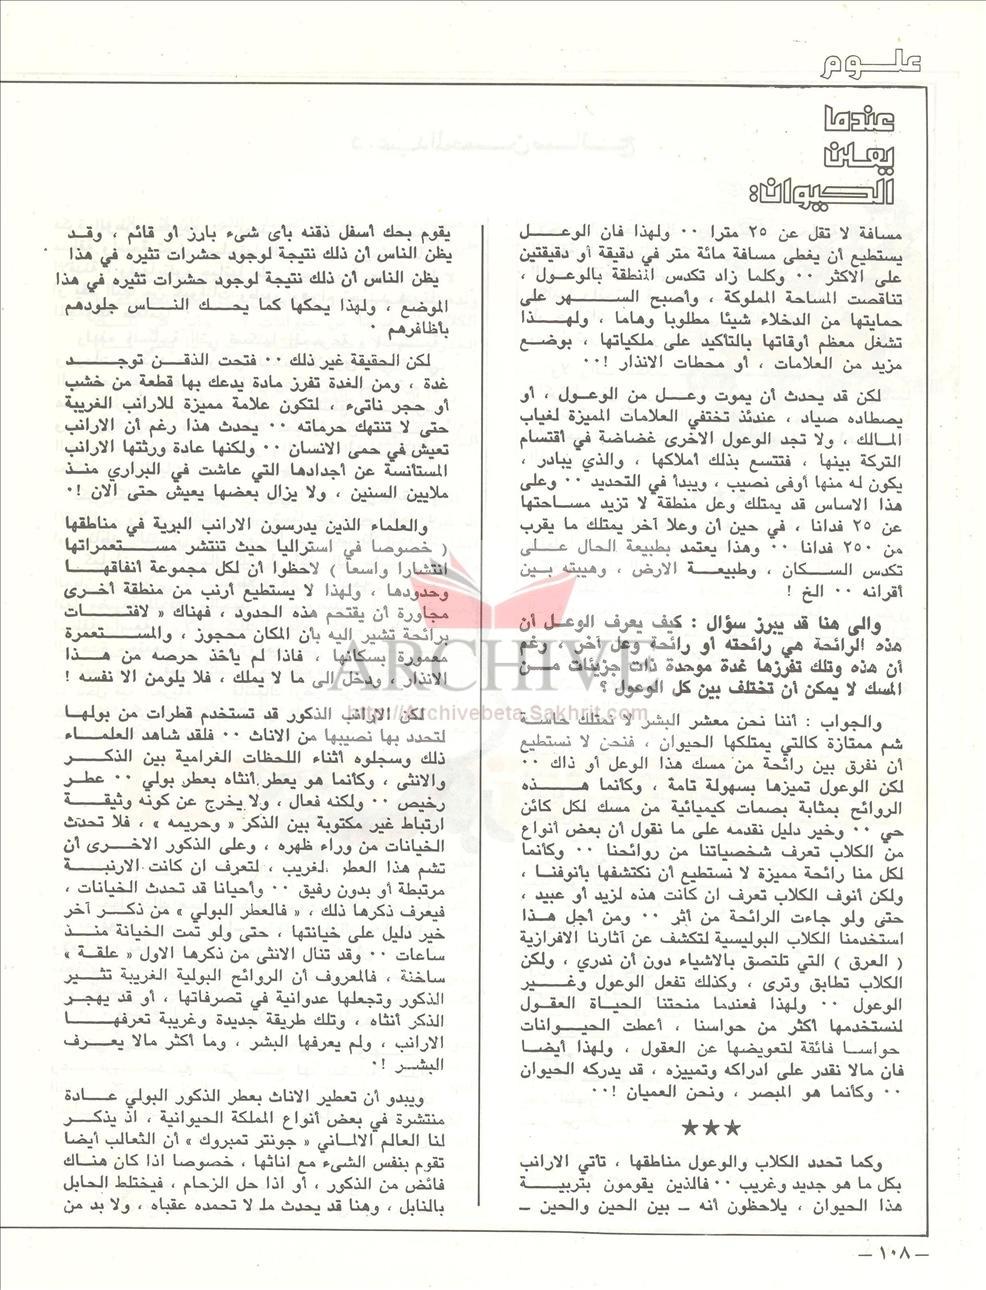 علـــوم
عندما
يعلن
الحيوان:
مسافة لا تقل عن ٢٥ مترا ٠٠ ولهذا فان الوعل
يستطيع أن يغطى مسافة مائة متر في دقيقة أو دقيقتين
على الاكثر ٠٠ وكلما زاد تكدس المنطقة بالوعول ،
تناقصت المساحة المملوكة ، وأصبح السهر على
حمايتها من الدخلاء شيئا مطلوبا وهاما ، ولهذا
تشغل معظم أوقاتها بالتأكيد على ملكياتها ، بوضع
مزيد من العلامات ، أو محطات الانذار !٠٠
لكن قد يحدث أن يموت وعل من الوعول ، أو
يصطاده صياد ، عندئذ تختفي العلامات المميزة لغياب
المالك ، ولا تجد الوعول الاخرى غضاضة في أقتسام
التركة بينها ، فتتسع بذلك أملاكها ، والذي يبادر ،
يكون له منها أوفى نصيب ، ويبدأ في التحديد ٠٠ وعلى
هذا الاساس قد يمتلك وعل منطقة لا تزيد مساحتها
عن ٢٥ فدانا ، في حين أن وعلا آخر يمتلك ما يقرب
من ٢٥٠ فدانا ٠٠ وهذا يعتمد بطبيعة الحال على
تكدس السكان ، وطبيعة الارض ، وهيبته بين
أقرانه ٠٠ الخ !
والى هنا قد يبرز سؤال : كيف يعرف الوعل أن
هذه الرائحة هي رائحته أو رائحة وعل آخر ، رغم
أن هذه وتلك تفرزها غدة موحدة ذات جزيئات من
المسك لا يمكن أن تختلف بين كل الوعول ؟
والجواب : أننا نحن معشر البشر لا نمتلك حاسة
شم ممتازة كالتي يمتلكها الحيوان ، فنحن لا نستطيع
أن نفرق بين رائحة من مسك هذا الوعل أو ذاك ٠٠
لكن الوعول تميزها بسهولة تامة ، وكأنما هذه
الروائح بمثابة بصمات كيميائية من مسك لكل كائن
حي ٠٠ وخير دليل نقدمه على ما نقول أن بعض أنواع
من الكلاب تعرف شخصياتنا من روائحنا ٠٠ وكأنما
لكل منا رائحة مميزة لا نستطيع أن نكتشفها بأنوفنا ،
ولكن أنوف الكلاب تعرف ان كانت هذه لزيد أو عبيد ،
حتى ولو جاءت الرائحة من أثر ٠٠ ومن أجل هذا
استخدمنا الكلاب البوليسية لتكشف عن آثارنا الافرازية
( العرق ) التي تلتصق بالاشياء دون أن ندري ، ولكن
الكلاب تطابق وترى ، وكذلك تفعل الوعول وغير
الوعول ٠٠ ولهذا فعندما منحتنا الحياة العقول
لنستخدمها أكثر من حواسنا ، أعطت الحيوانات
حواسا فائقة لتعويضها عن العقول ، ولهذا أيضا
فان مالا نقدر على ادراكه وتمييزه ، قد يدركه الحيوان
٠٠ وكأنما هو المبصر ، ونحن العميان !٠٠
★★★
وكما تحدد الكلاب والوعول مناطقها ، تأتي الارانب
بكل ما هو جديد وغريب ٠٠ فالذين يقومون بتربية
هذا الحيوان ، يلاحظون أنه ــ بين الحين والحين ــ
يقوم بحك أسفل ذقنه بأى شىء بارز أو قائم ، وقد
يظن الناس أن ذلك نتيجة لوجود حشرات تثيره في هذا
يظن الناس أن ذلك نتيجة لوجود حشرات تثيره في هذا
الموضع ، ولهذا يحكها كما يحك الناس جلودهم
بأظافرهم ٠
لكن الحقيقة غير ذلك ٠٠ فتحت الذقن توجد
غدة ، ومن الغدة تفرز مادة يدعك بها قطعة من خشب
أو حجر ناتىء ، لتكون علامة مميزة للارانب الغريبة
حتى لا تنتهك حرماته ٠٠ يحدث هذا رغم أن الارانب
تعيش في حمى الانسان ٠٠ ولكنها عادة ورثتها الارانب
المستأنسة عن أجدادها التي عاشت في البراري منذ
ملايين السنين ، ولا يزال بعضها يعيش حتى الان !٠
والعلماء الذين يدرسون الارانب البرية في مناطقها
( خصوصا في استراليا حيث تنتشر مستعمراتها
انتشارا واسعا ) لاحظوا أن لكل مجموعة أنفاقها
وحدودها ، ولهذا لا يستطيع أرنب من منطقة أخرى
مجاورة أن يقتحم هذه الحدود ، فهناك « لافتات
برائحة تشير اليه بأن المكان محجوز ، والمستعمرة
معمورة بسكانها ، فاذا لم يأخذ حرصه من هذا
الانذار ، ودخل الى ما لا يملك ، فلا يلومن الا نفسه !
لكن الارانب الذكور قد تستخدم قطرات من بولها
لتحدد بها نصيبها من الاناث ٠٠ فلقد شاهد العلماء
ذلك وسجلوه أثناء اللحظات الغرامية بين الذكر
والانثى ، وكأنما هو يعطر أنثاه بعطر بولي ٠٠ عطر
رخيص ٠٠ ولكنه فعال ، ولا يخرج عن كونه وثيقة
ارتباط غير مكتوبة بين الذكر « وحريمه » ، فلا تحدث
الخيانات من وراء ظهره ، وعلى الذكور الاخرى أن
تشم هذا العطر الغريب ، لتعرف ان كانت الارنبة
مرتبطة أو بدون رفيق ٠٠ وأحيانا قد تحدث الخيانات ،
فيعرف ذكرها ذلك ، « فالعطر البولي » من ذكر آخر
خير دليل على خيانتها ، حتى ولو تمت الخيانة منذ
ساعات ٠٠ وقد تنال الانثى من ذكرها الاول « علقة »
ساخنة ، فالمعروف أن الروائح البولية الغريبة تثير
الذكور وتجعلها عدوانية في تصرفاتها ، أو قد يهجر
الذكر أنثاه ، وتلك طريقة جديدة وغريبة تعرفها
الارانب ، ولم يعرفها البشر ، وما أكثر مالا يعرف
البشر !٠
ويبدو أن تعطير الاناث بعطر الذكور البولي عادة
منتشرة في بعض أنواع المملكة الحيوانية ، اذ يذكر
لنا العالم الالماني « جونتر تمبروك » أن الثعالب أيضا
تقوم بنفس الشىء مع اناثها ، خصوصا اذا كان هناك
فائض من الذكور ، أو اذا حل الزحام ، فيختلط الحابل
بالنابل ، وهنا قد يحدث ما لا تحمده عقباه ، ولا بد من
ARCHIVE
http://Archivebeta.Sakhrit.com
– ١٠٨ –